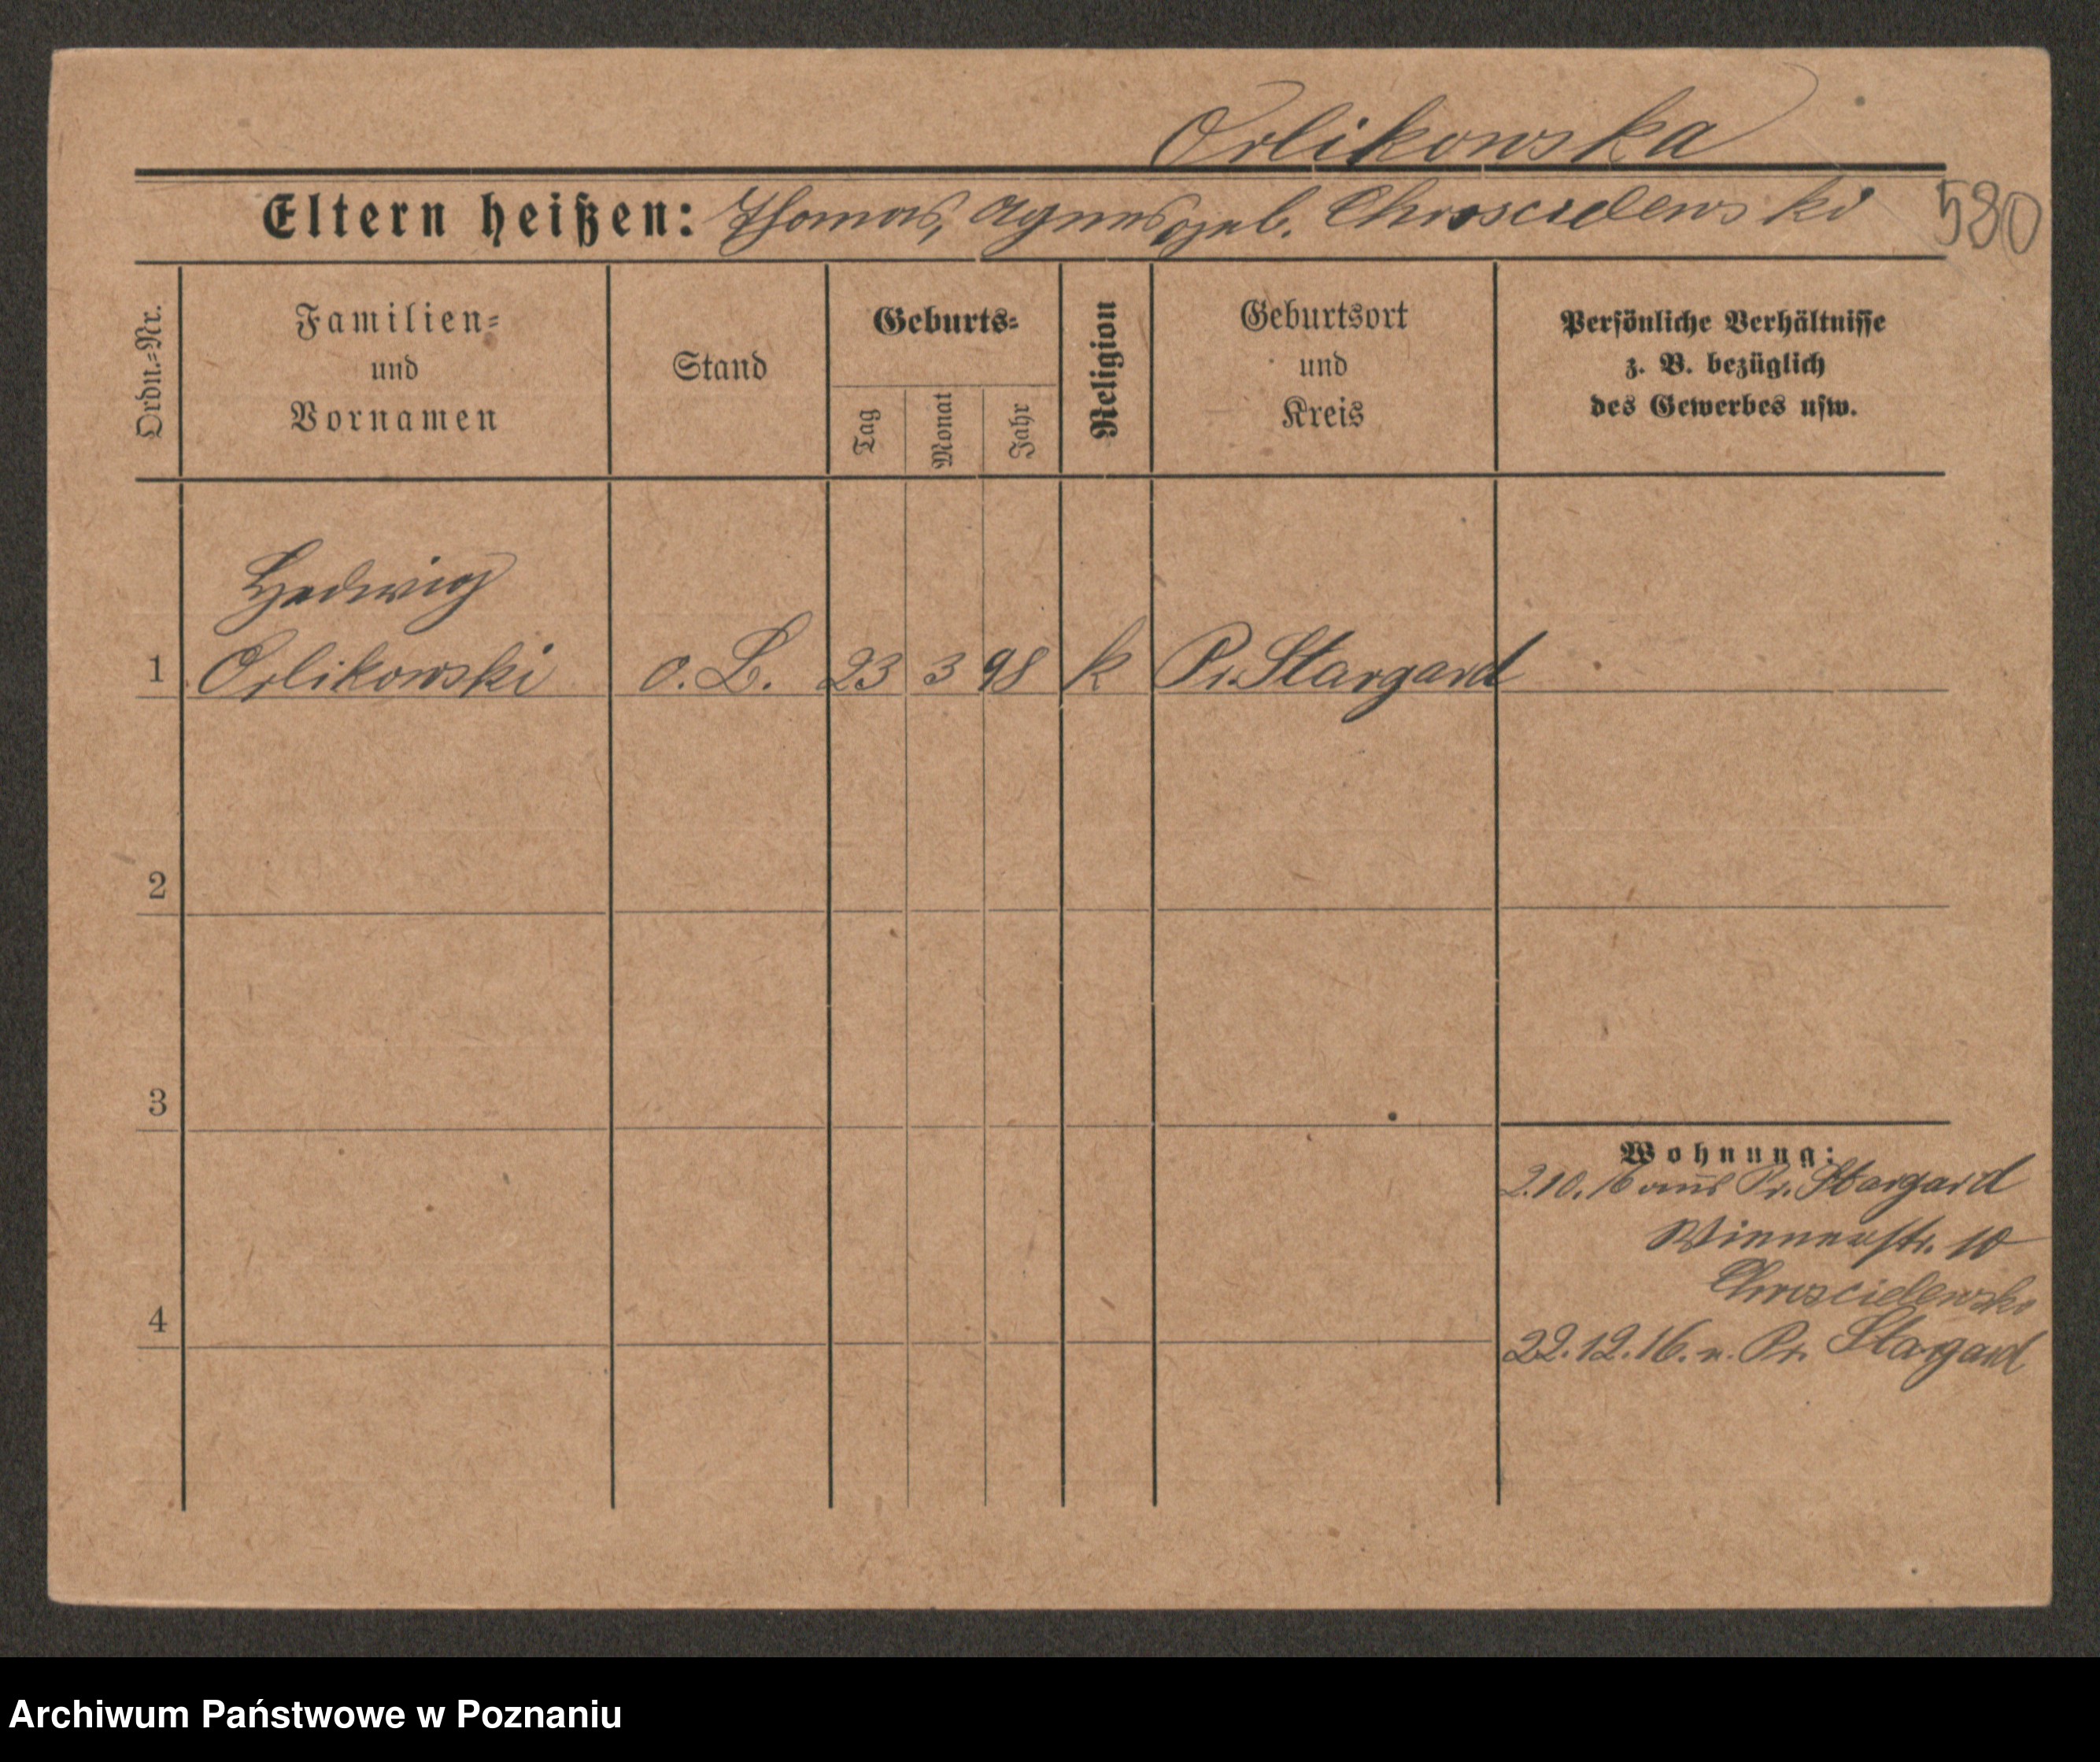 Orlikowska
Eltern heißen: Thomas, Agnes geb. Chroscielewski 580
Ordn.=Nr.
Familien=
und
Vornamen
Stand
Geburts=
Tag
Monat
Jahr
Religion
Geburtsort
und
Kreis
Persönliche Verhältnisse
z. B. bezüglich
des Gewerbes usw.
Hedwig
1 Orlikowski o. B. 23 3 98 k Pr. Stargard
2
3
Wohnung:
2.10.16 aus Pr. Stargard
Wienerstr. 10
Chroscielewski
4
22.12.16. n. Pr. Stagard
Archiwum Państwowe w Poznaniu